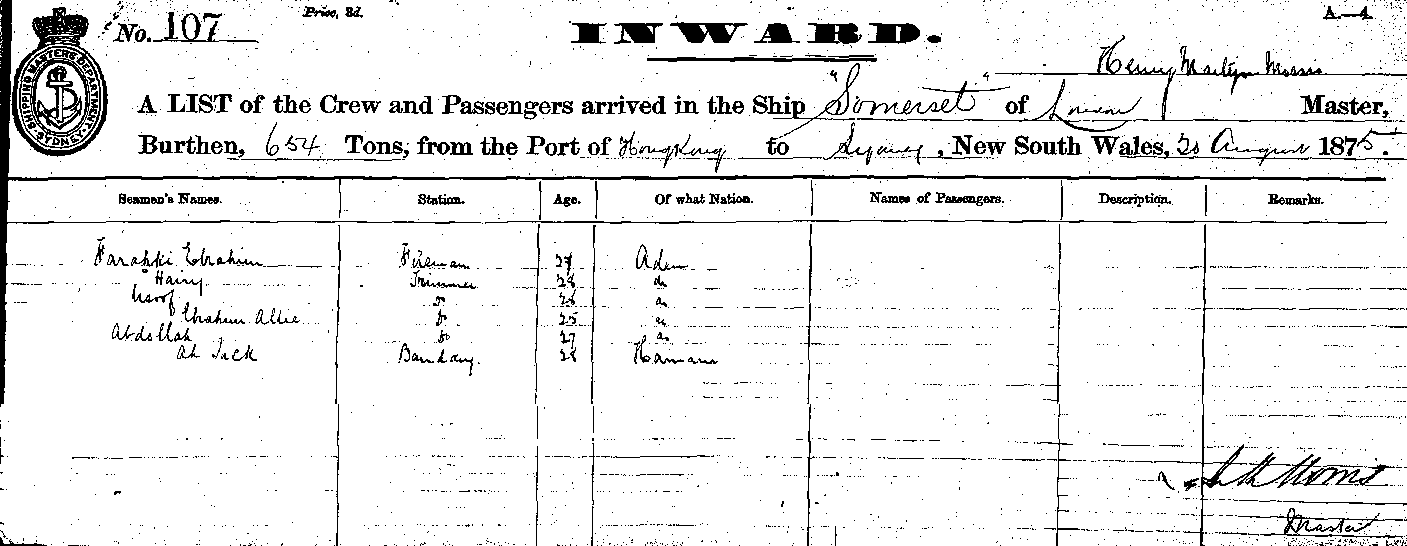 No. 107
Price, 3d.
INWARD.
A.—4
SHIPPING MASTER'S DEPARTMENT SYDNEY
Henry Martyn Morris
A LIST of the Crew and Passengers arrived in the Ship "Somerset" of London Master,
Burthen, 654 Tons, from the Port of HongKong to Sydney, New South Wales, 20 August 1875.
Seamen's Names. Station. Age. Of what Nation. Names of Passengers. Description. Remarks.
Farahki Ebrahim Fireman Aden
Hairy Trimmer 28 do
do 28 do
Ebrahim Allie do 25 do
Abdollah do 27 do
Ah Jack 28
Morris
Master